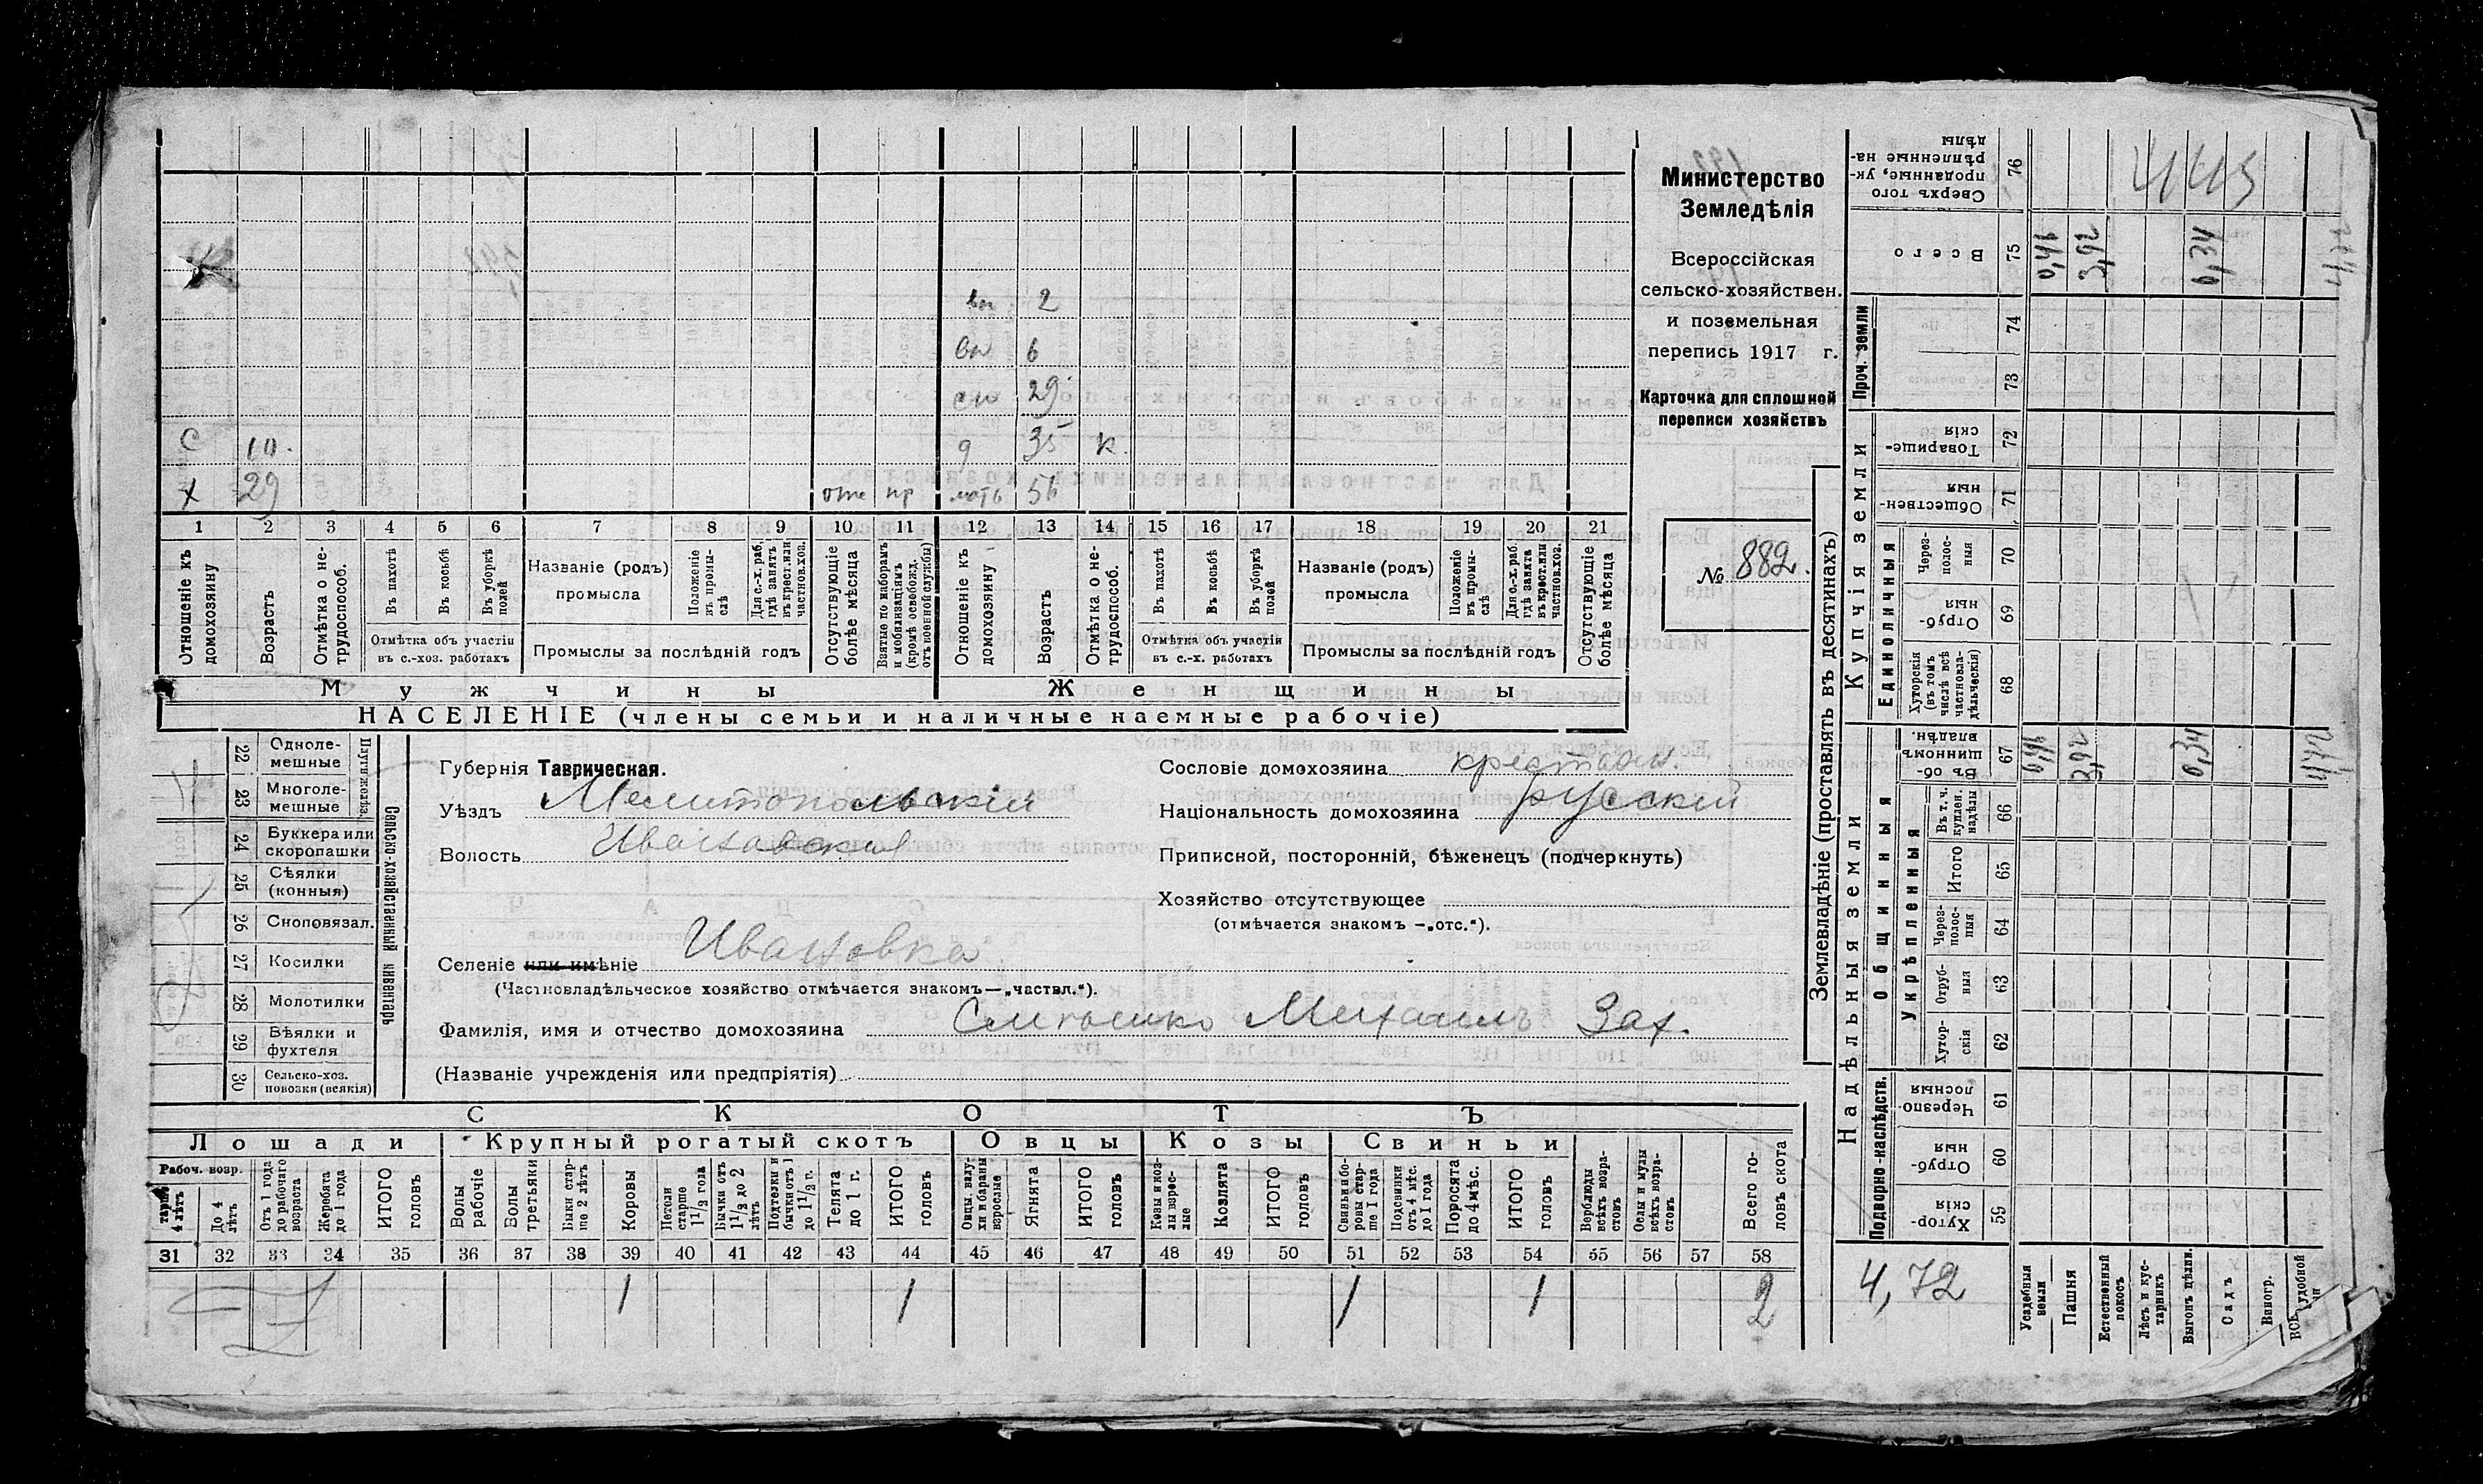 Министерство
Земледѣлія
Всероссійская
сельско-хозяйствен.
и поземельная
перепись 1917 г.
Карточка для сплошной
переписи хозяйствъ
№ 882.
вн 2
вн 6
сн 29
С 10. д 35 к.
х 29 отс пр мать 56
1 2 3 4 5 6 7 8 9 10 11 12 13 14 15 16 17 18 19 20 21
Отношеніе къ домохозяину
Возрастъ
Отмѣтка о не-трудоспособ.
Въ пахотѣ
Въ косьбѣ
Въ уборкѣ полей
Отмѣтка объ участіи въ с.-хоз. работахъ
Названіе (родъ) промысла
Положеніе въ промы-слѣ
Для с.-х. раб. гдѣ занятъ въ крест. или частнов. хоз.
Промыслы за послѣдній годъ
Отсутствующіе болѣе мѣсяца
Взятые по наборамъ и мобилизаціямъ (кромѣ освобожд. отъ военной службы)
Отношеніе къ домохозяину
Возрастъ
Отмѣтка о не-трудоспособ.
Въ пахотѣ
Въ косьбѣ
Въ уборкѣ полей
Отмѣтка объ участіи въ с.-х. работахъ
Названіе (родъ) промысла
Положеніе въ промы-слѣ
Для с.-х. раб. гдѣ занята въ крест. или частнов. хоз.
Промыслы за послѣдній годъ
Отсутствующіе болѣе мѣсяца
Мужчины Женщины
НАСЕЛЕНІЕ (члены семьи и наличные наемные рабочіе)
Сельско-хозяйственный инвентарь
22 Одноле-мешные
23 Многоле-мешные
24 Буккера или скоропашки
25 Сѣялки (конныя)
26 Сноповязал.
27 Косилки
28 Молотилки
29 Вѣялки и фухтеля
30 Сельско-хоз. повозки (всякія)
Губернія Таврическая.
Уѣздъ Мелитопольскій
Волость Ивановская
Сословіе домохозяина крестьян.
Національность домохозяина русскій
Приписной, посторонній, бѣженецъ (подчеркнуть)
Хозяйство отсутствующее
(отмѣчается знакомъ —„отс.“).
Селеніе или имѣніе Ивановка
(Частновладѣльческое хозяйство отмѣчается знакомъ—„частвл.“).
Фамилія, имя и отчество домохозяина Михаилъ Зах.
(Названіе учрежденія или предпріятія)
СКОТЪ
Лошади Крупный рогатый скотъ Овцы Козы Свиньи
Рабоч. возр.
тарше 4 лѣтъ
До 4 лѣтъ
Отъ 1 года до рабочаго возраста
Жеребята до 1 года
ИТОГО головъ
Волы рабочіе
Волы третьяки
Быки стар-ше 2 лѣтъ
Коровы
Нетели старше 1 1/2 года
Бычки отъ 1 1/2 до 2 лѣтъ
Подтелки и бычки отъ 1 до 1 1/2 г.
Телята до 1 г.
ИТОГО головъ
Овцы, валу-хи и бараны взрослые
Ягнята
ИТОГО головъ
Козы и коз-лы взрос-лые
Козлята
ИТОГО головъ
Свиньи и бо-ровы стар-ше 1 года
Подсвинки отъ 4 мѣс. до 1 года
Поросята до 4 мѣс.
ИТОГО головъ
Верблюды всѣхъ возра-стовъ
Ослы и мулы всѣхъ возра-стовъ
Всего го-ловъ скота
31 32 33 34 35 36 37 38 39 40 41 42 43 44 45 46 47 48 49 50 51 52 53 54 55 56 57 58
1 1 1 1 2
Землевладѣніе (проставлять въ десятинахъ)
Надѣльныя земли Купчія земли Проч. земли
Подворно-наслѣдств. Общинныя Единоличныя
Укрѣпленныя
76 Сверхъ того проданные, ук-рѣпленные на-дѣлы 445
75 Всего 0,46 3,92 0,34 4,72
74
73
72 Товарище-скія
71 Обществен-ныя
70 Через-полос-ныя
69 Отруб-ныя
68 Хуторскія (въ томъ числѣ всѣ частновла-дѣльческія)
67 Въ об-щинномъ владѣн. 0,46 3,92 0,34 4,72
66 Въ т. ч. куплен. надѣлы
65 Итого
64 Через-полос-ныя
63 Отруб-ныя
62 Хутор-скія
61 Черезпо-лосныя
60 Отруб-ныя
59 Хутор-скія
4,72
Усадебныя земли
Пашня
Естественный покосъ
Лѣсъ и кус-тарникъ
Выгонъ цѣлин.
Садъ
Виногр.
удобной